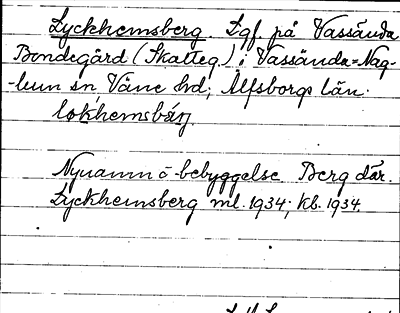 Lyckhemsberg. Lgf. på Vassända
Bondegård (Skatteg.) i Vassända=Nag-
-lum sn Väne hd; Älfsborgs län.
Nynamn å bebyggelse Berg där.
Lyckhemsberg ml. 1934; kb. 1934.